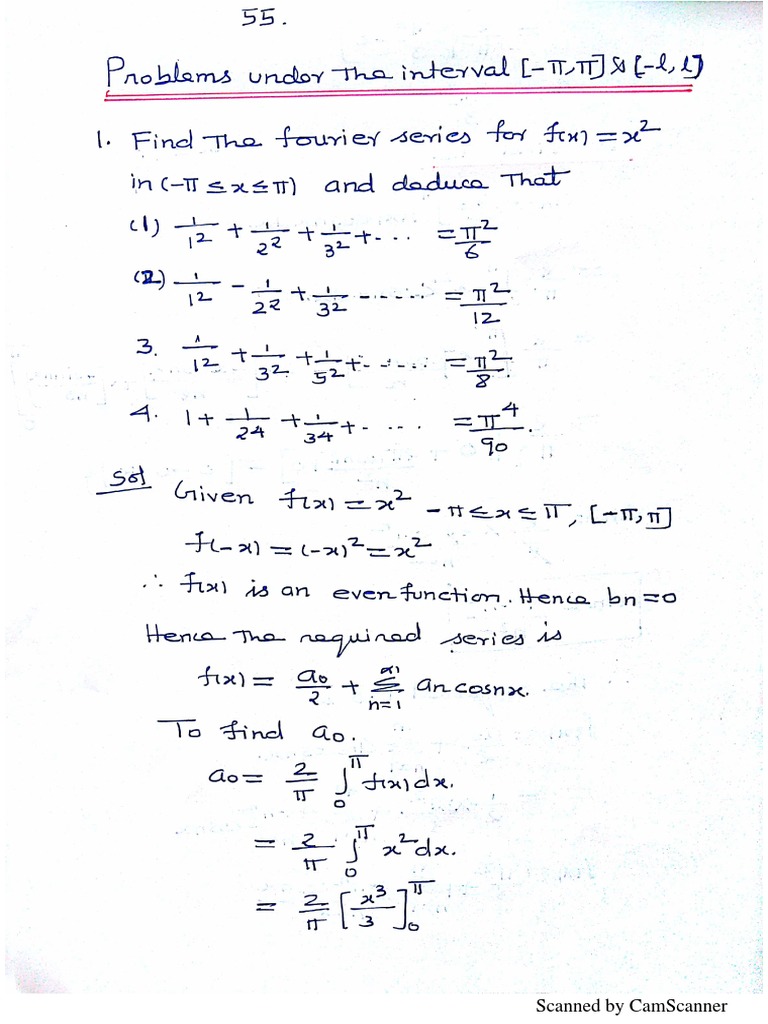 55.
Problems under the interval [-π,π] & [-l, l]
1. Find the fourier series for f(x) = x²
in (-π ≤ x ≤ π) and deduce that
(1) 1/1² + 1/2² + 1/3² + .... = π²/6
(2) 1/1² - 1/2² + 1/3² - ..... = π²/12
3. 1/1² + 1/3² + 1/5² + ...... = π²/8.
4. 1 + 1/24 + 1/34 + .... = π⁴/90.
Sol Given f(x) = x² -π ≤ x ≤ π, [-π, π]
f(-x) = (-x)² = x²
∴ f(x) is an even function. Hence bn = 0
Hence the required series is
f(x) = a0/2 + Σ_{n=1}^{∞} an cosnx.
To find a0.
a0 = 2/π ∫_0^π f(x) dx.
= 2/π ∫_0^π x² dx.
= 2/π [x³/3]_0^π
Scanned by CamScanner